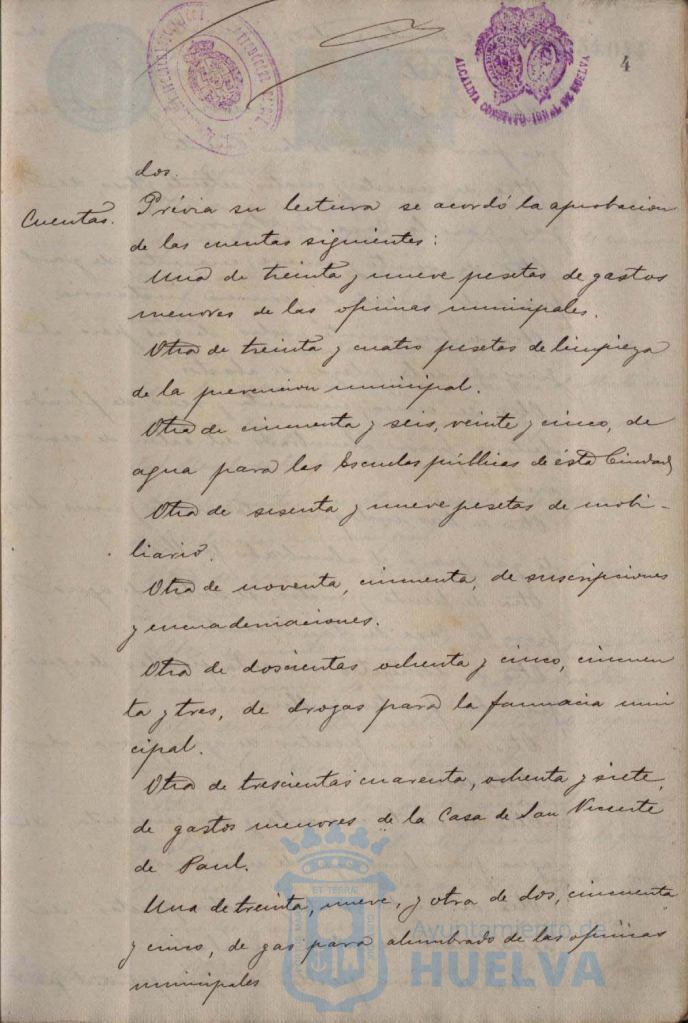 4
ALCALDIA CONSTITUCIONAL DE HUELVA
dos.
Cuentas. Prévia su lectura se acordó la aprobacion
de las cuentas siguientes:
Una de treinta y nueve pesetas de gastos
menores de las oficinas municipales.
Otra de treinta y cuatro pesetas de limpieza
de la prevencion municipal.
Otra de cincuenta y seis, veinte y cinco, de
agua para las Escuelas públicas de ésta Ciudad
Otra de sesenta y nueve pesetas de mobi-
liario.
Otra de noventa, cincuenta, de suscripciones
y encuadernaciones.
Otra de doscientas ochenta y cinco, cincuen
ta y tres, de drogas para la farmacia muni
cipal.
Otra de trescientas cuarenta, ochenta y siete,
de gastos menores de la Casa de San Vicente
de Paul.
Una de treinta, nueve, y otra de dos, cincuenta
y cinco, de gas para alumbrado de las oficinas
municipales
Ayuntamiento de
HUELVA